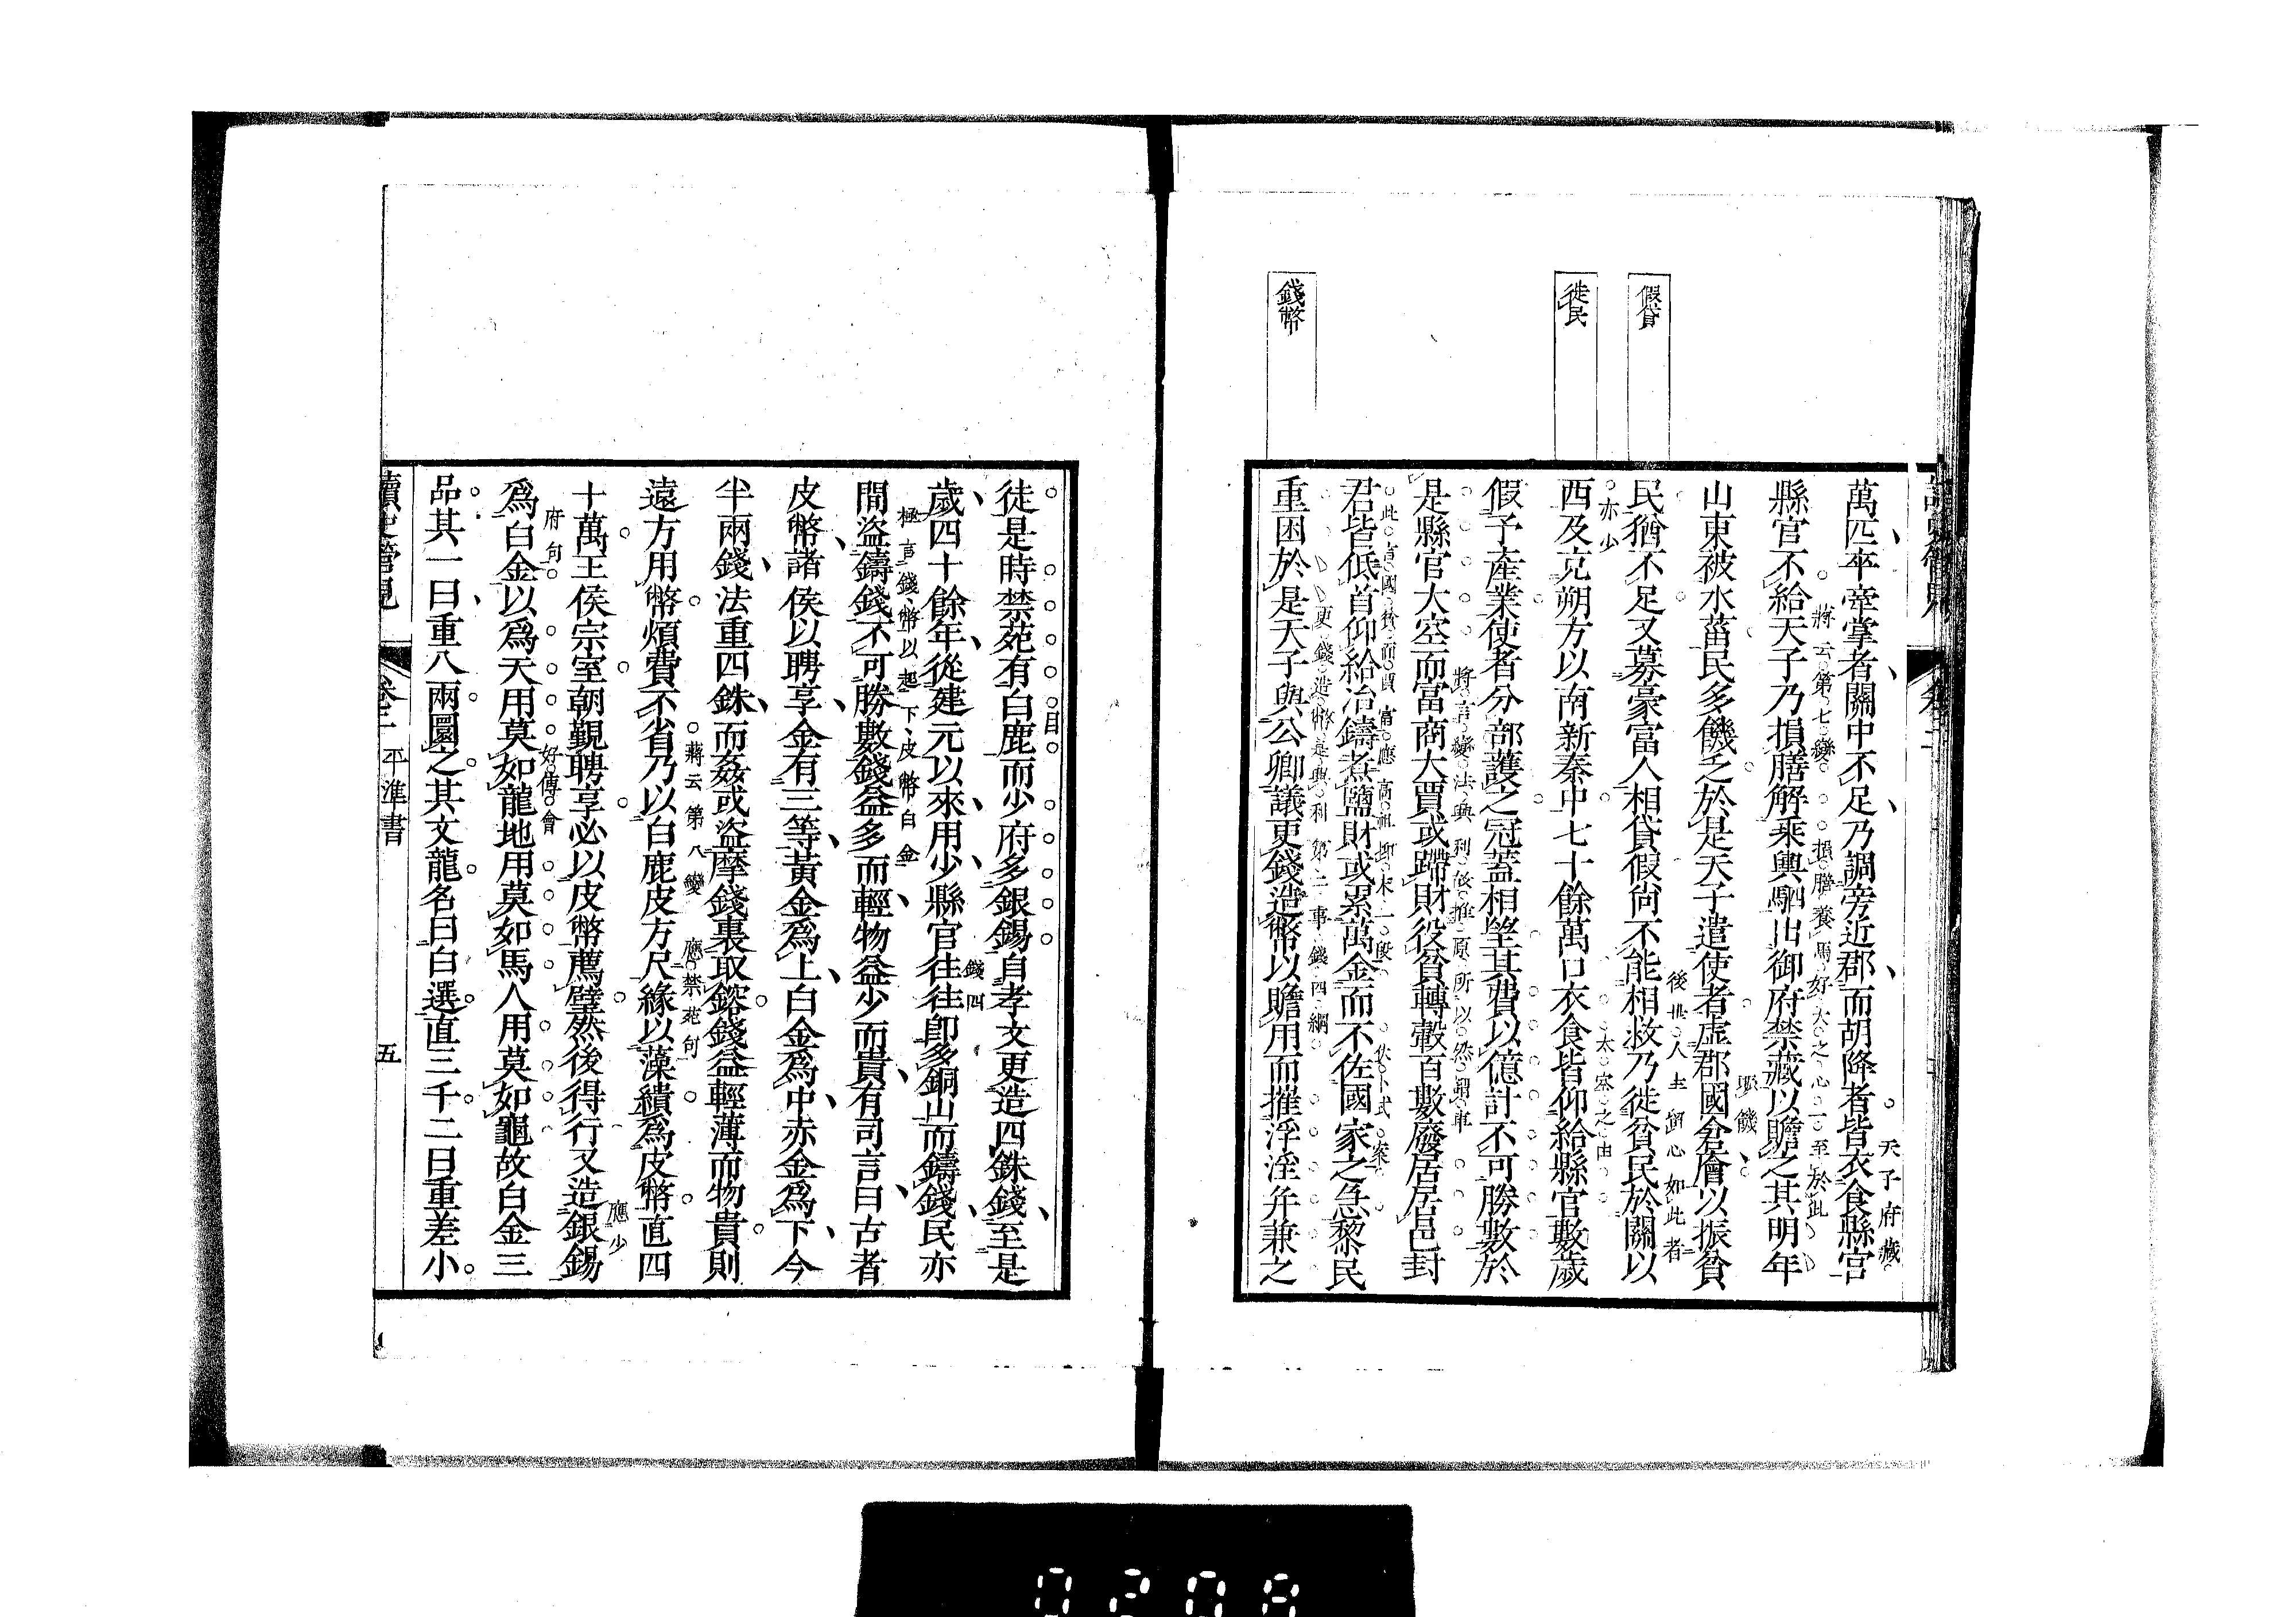 假貸
徙民
錢幣
萬匹卒牽掌者關中不足乃調旁近郡而胡降者皆衣食縣官
天子府藏
縣官不給天子乃損膳解乘輿駟出御府禁藏以贍之其明年
蔣云第七變
損膳養馬好大之心一至於此
山東被水菑民多饑乏於是天子遣使者虛郡國倉廥以振貧
民猶不足又募豪富人相貸假尙不能相救乃徙貧民於關以
後世人主留心如此者
西及充朔方以南新秦中七十餘萬口衣食皆仰給縣官數歲
亦少
假予產業使者分部護之冠蓋相望其費以億計不可勝數於
是縣官大空而富商大賈或蹛財役貧轉轂百數廢居居邑封
將言變法興利故推原所以然
君皆低首仰給冶鑄煮鹽財或累萬金而不佐國家之急黎民
此言國貧而民富應高祖抑末一段
伏卜式案
重困於是天子與公卿議更錢造幣以贍用而摧浮淫并兼之
更錢造幣是興利第二事錢四綱
徒是時禁苑有白鹿而少府多銀錫自孝文更造四銖錢至是
目
歲四十餘年從建元以來用少縣官往往卽多銅山而鑄錢民亦
錢四
間盜鑄錢不可勝數錢益多而輕物益少而貴有司言曰古者
極言錢幣以起下皮幣白金
皮幣諸侯以聘享金有三等黃金爲上白金爲中赤金爲下今
半兩錢法重四銖而姦或盜摩錢裏取鎔錢益輕薄而物貴則
遠方用幣煩費不省乃以白鹿皮方尺緣以藻繢爲皮幣直四
蔣云第八變
應禁苑句
十萬王侯宗室朝覲聘享必以皮幣薦璧然後得行又造銀錫
應少
爲白金以爲天用莫如龍地用莫如馬人用莫如龜故白金三
府句
好傅會
品其一曰重八兩圜之其文龍名曰白選直三千二曰重差小
讀史管見
卷二
平準書
五